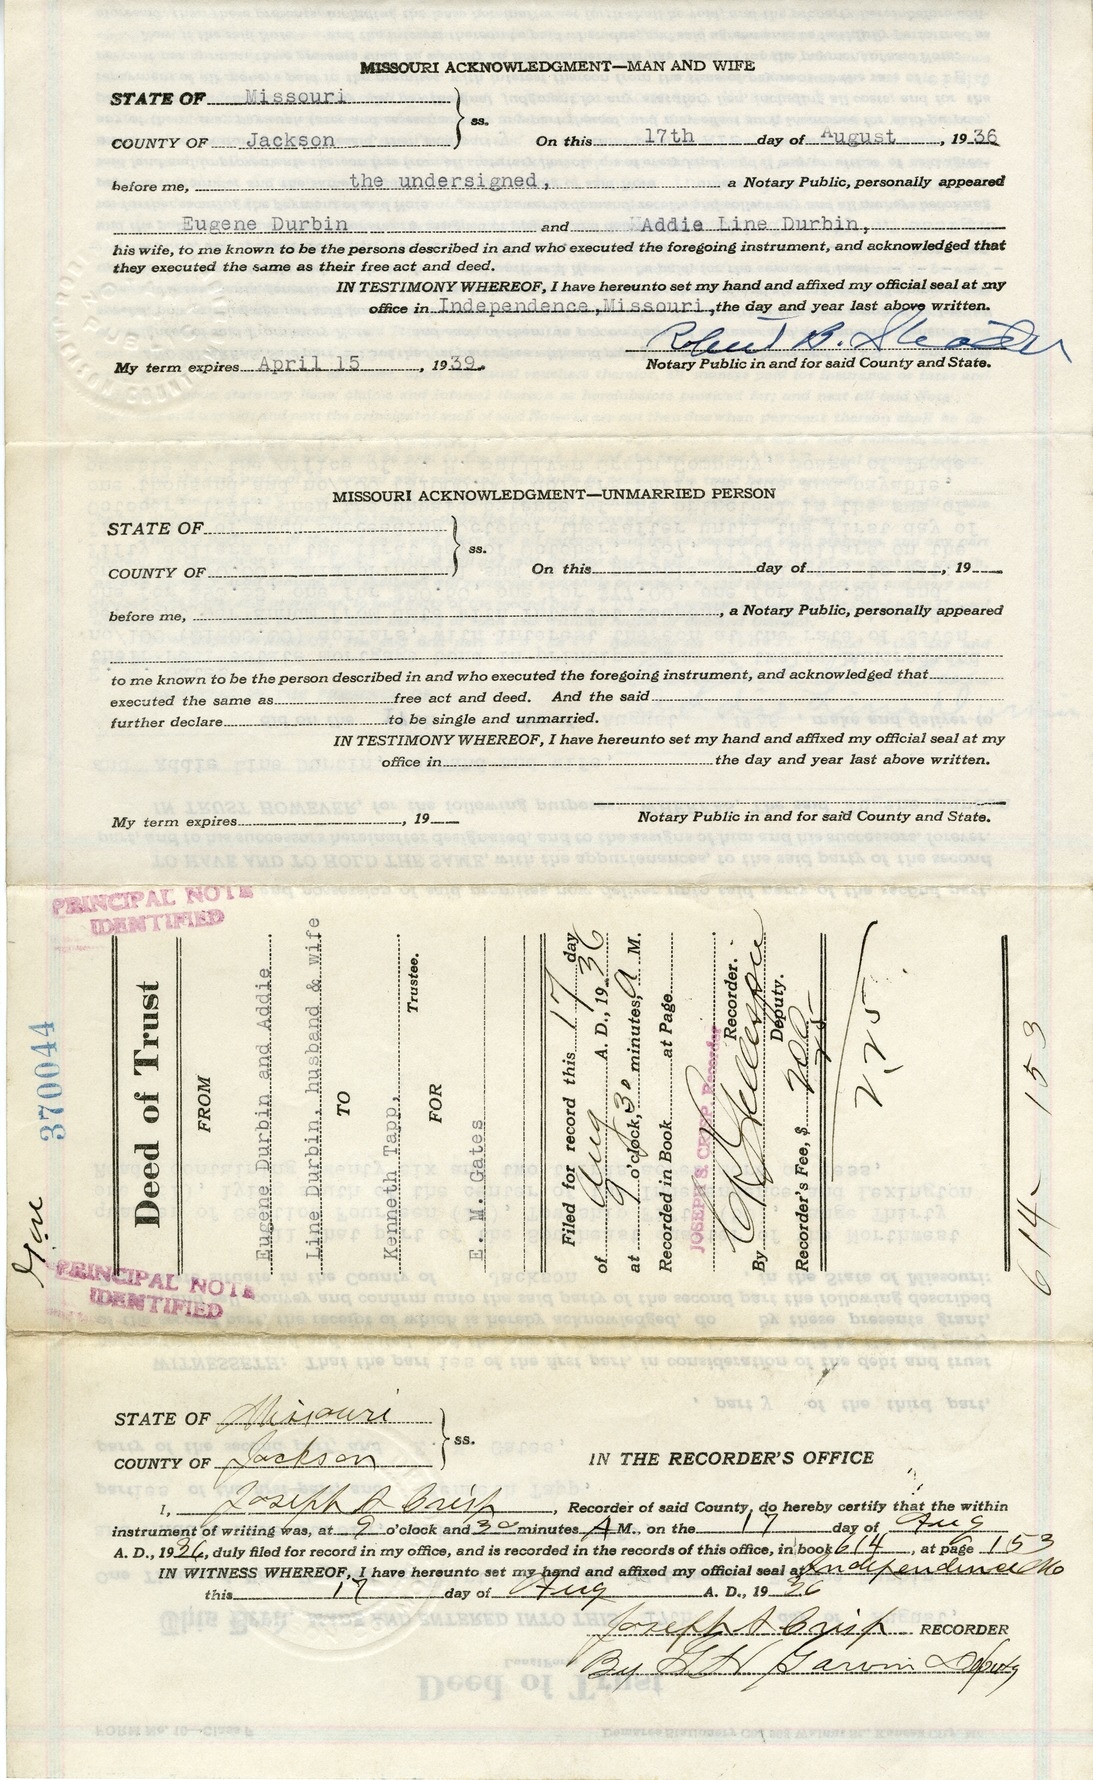 MISSOURI ACKNOWLEDGMENT—MAN AND WIFE
STATE OF Missouri
ss.
COUNTY OF Jackson On this 17th day of August, 1936
before me, the undersigned, a Notary Public, personally appeared
Eugene Durbin and Addie Line Durbin,
his wife, to me known to be the persons described in and who executed the foregoing instrument, and acknowledged that
they executed the same as their free act and deed.
IN TESTIMONY WHEREOF, I have hereunto set my hand and affixed my official seal at my
office in Independence, Missouri, the day and year last above written.
Robert B.
My term expires April 15, 1939. Notary Public in and for said County and State.
MISSOURI ACKNOWLEDGMENT—UNMARRIED PERSON
STATE OF
ss.
COUNTY OF On this day of , 19
before me, , a Notary Public, personally appeared
to me known to be the person described in and who executed the foregoing instrument, and acknowledged that
executed the same as free act and deed. And the said
further declare to be single and unmarried.
IN TESTIMONY WHEREOF, I have hereunto set my hand and affixed my official seal at my
office in the day and year last above written.
My term expires , 19 Notary Public in and for said County and State.
PRINCIPAL NOTE
IDENTIFIED
PRINCIPAL NOTE
IDENTIFIED
370044
Deed of Trust
FROM
Eugene Durbin and Addie
Line Durbin, husband & wife
TO
Kenneth Tapp,
Trustee.
FOR
E. M. Gates
Filed for record this 17 day
of Aug A. D., 1936
at 9 o'clock, 30 minutes, A M.
Recorded in Book at Page
JOSEPH S. CRISP, Recorder
Recorder.
By
Deputy.
Recorder's Fee, $ 200
25
2.25
614 - 153
STATE OF Missouri
ss.
COUNTY OF Jackson IN THE RECORDER'S OFFICE
I, Joseph S Crisp, Recorder of said County, do hereby certify that the within
instrument of writing was, at 9 o'clock and 30 minutes A M. on the 17 day of Aug
A. D., 1936, duly filed for record in my office, and is recorded in the records of this office, in book 614, at page 153
IN WITNESS WHEREOF, I have hereunto set my hand and affixed my official seal at Independence Mo
this 17 day of Aug A. D., 1936
Joseph S Crisp RECORDER
By Garvin Deputy